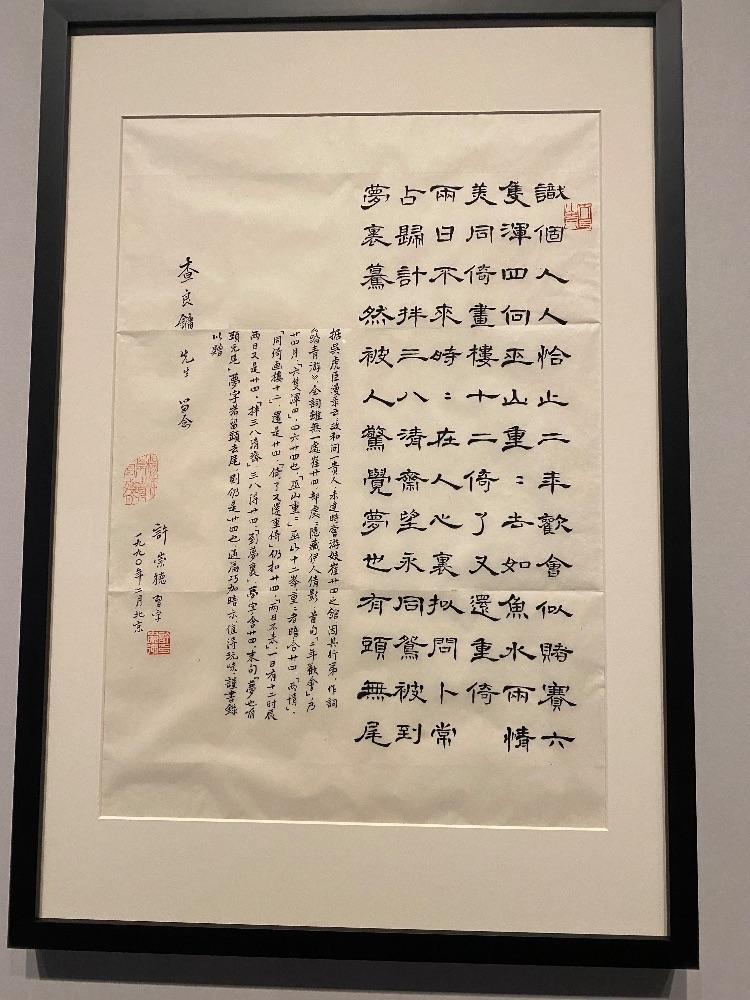 識個人人恰止二年歡會似賭賽六
隻渾四向巫山重〻去如魚水兩情
美同倚畫樓十二倚了又還重倚
兩日不來時〻在人心裏擬問卜常
占歸計拌三八清齋望永同鴛被到
夢裏驀然被人驚覺夢也有頭無尾
据吳虎臣漫录云：政和间一貴人未達時嘗游妓崔廿四之館因其行第，作詞
《踏青游》全詞雖無一處崔廿四，隱藏伊人倩影。首句「二年歡會」，乃
廿四月，「六隻渾四」，四六廿四也，「巫山重〻」，巫山十二峯重〻者暗合廿四，「兩情」、
「同倚画樓十二」，還是廿四，「倚了又還重倚」仍扣廿四，「兩日不來」，一日有十二时辰
两日又是廿四，「拌三八清齋」三八得廿四，「到夢裏」夢字含廿四，末句「夢也有
頭無尾」夢字若留頭去尾則仍是廿四也 通篇巧加暗示 值得玩味 謹書錄
以贈
查良鏞 先生 留念
許崇德
一九九〇年二月北京